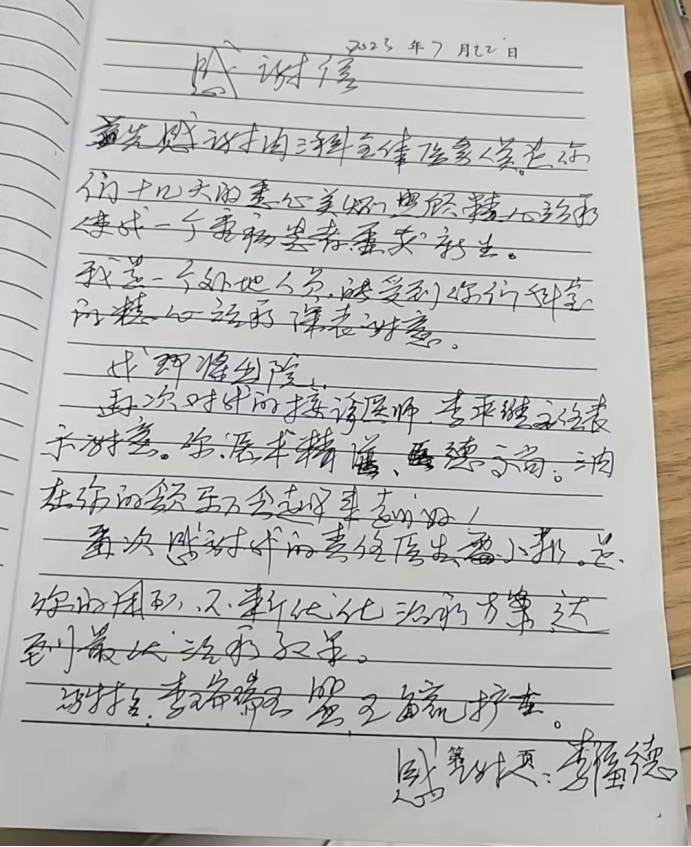 2023年7月22日
感谢信
首先感谢内三科全体医务人员。是你
们十几天的悉心关怀照顾精心治疗
使我一个重病患者重获新生。
我是一个外地人员,能受到你们科室
的精心治疗深表谢意。
我即将出院,
再次对我的接诊医师,李来继主任表
示谢意。你医术精湛、医德高尚。三内
在你的领导下会越来越好!
再次感谢我的责任医生雷小邦。是
你的用心,不断优化治疗方案达
到最优治疗效果。
感谢 李福德
第 页